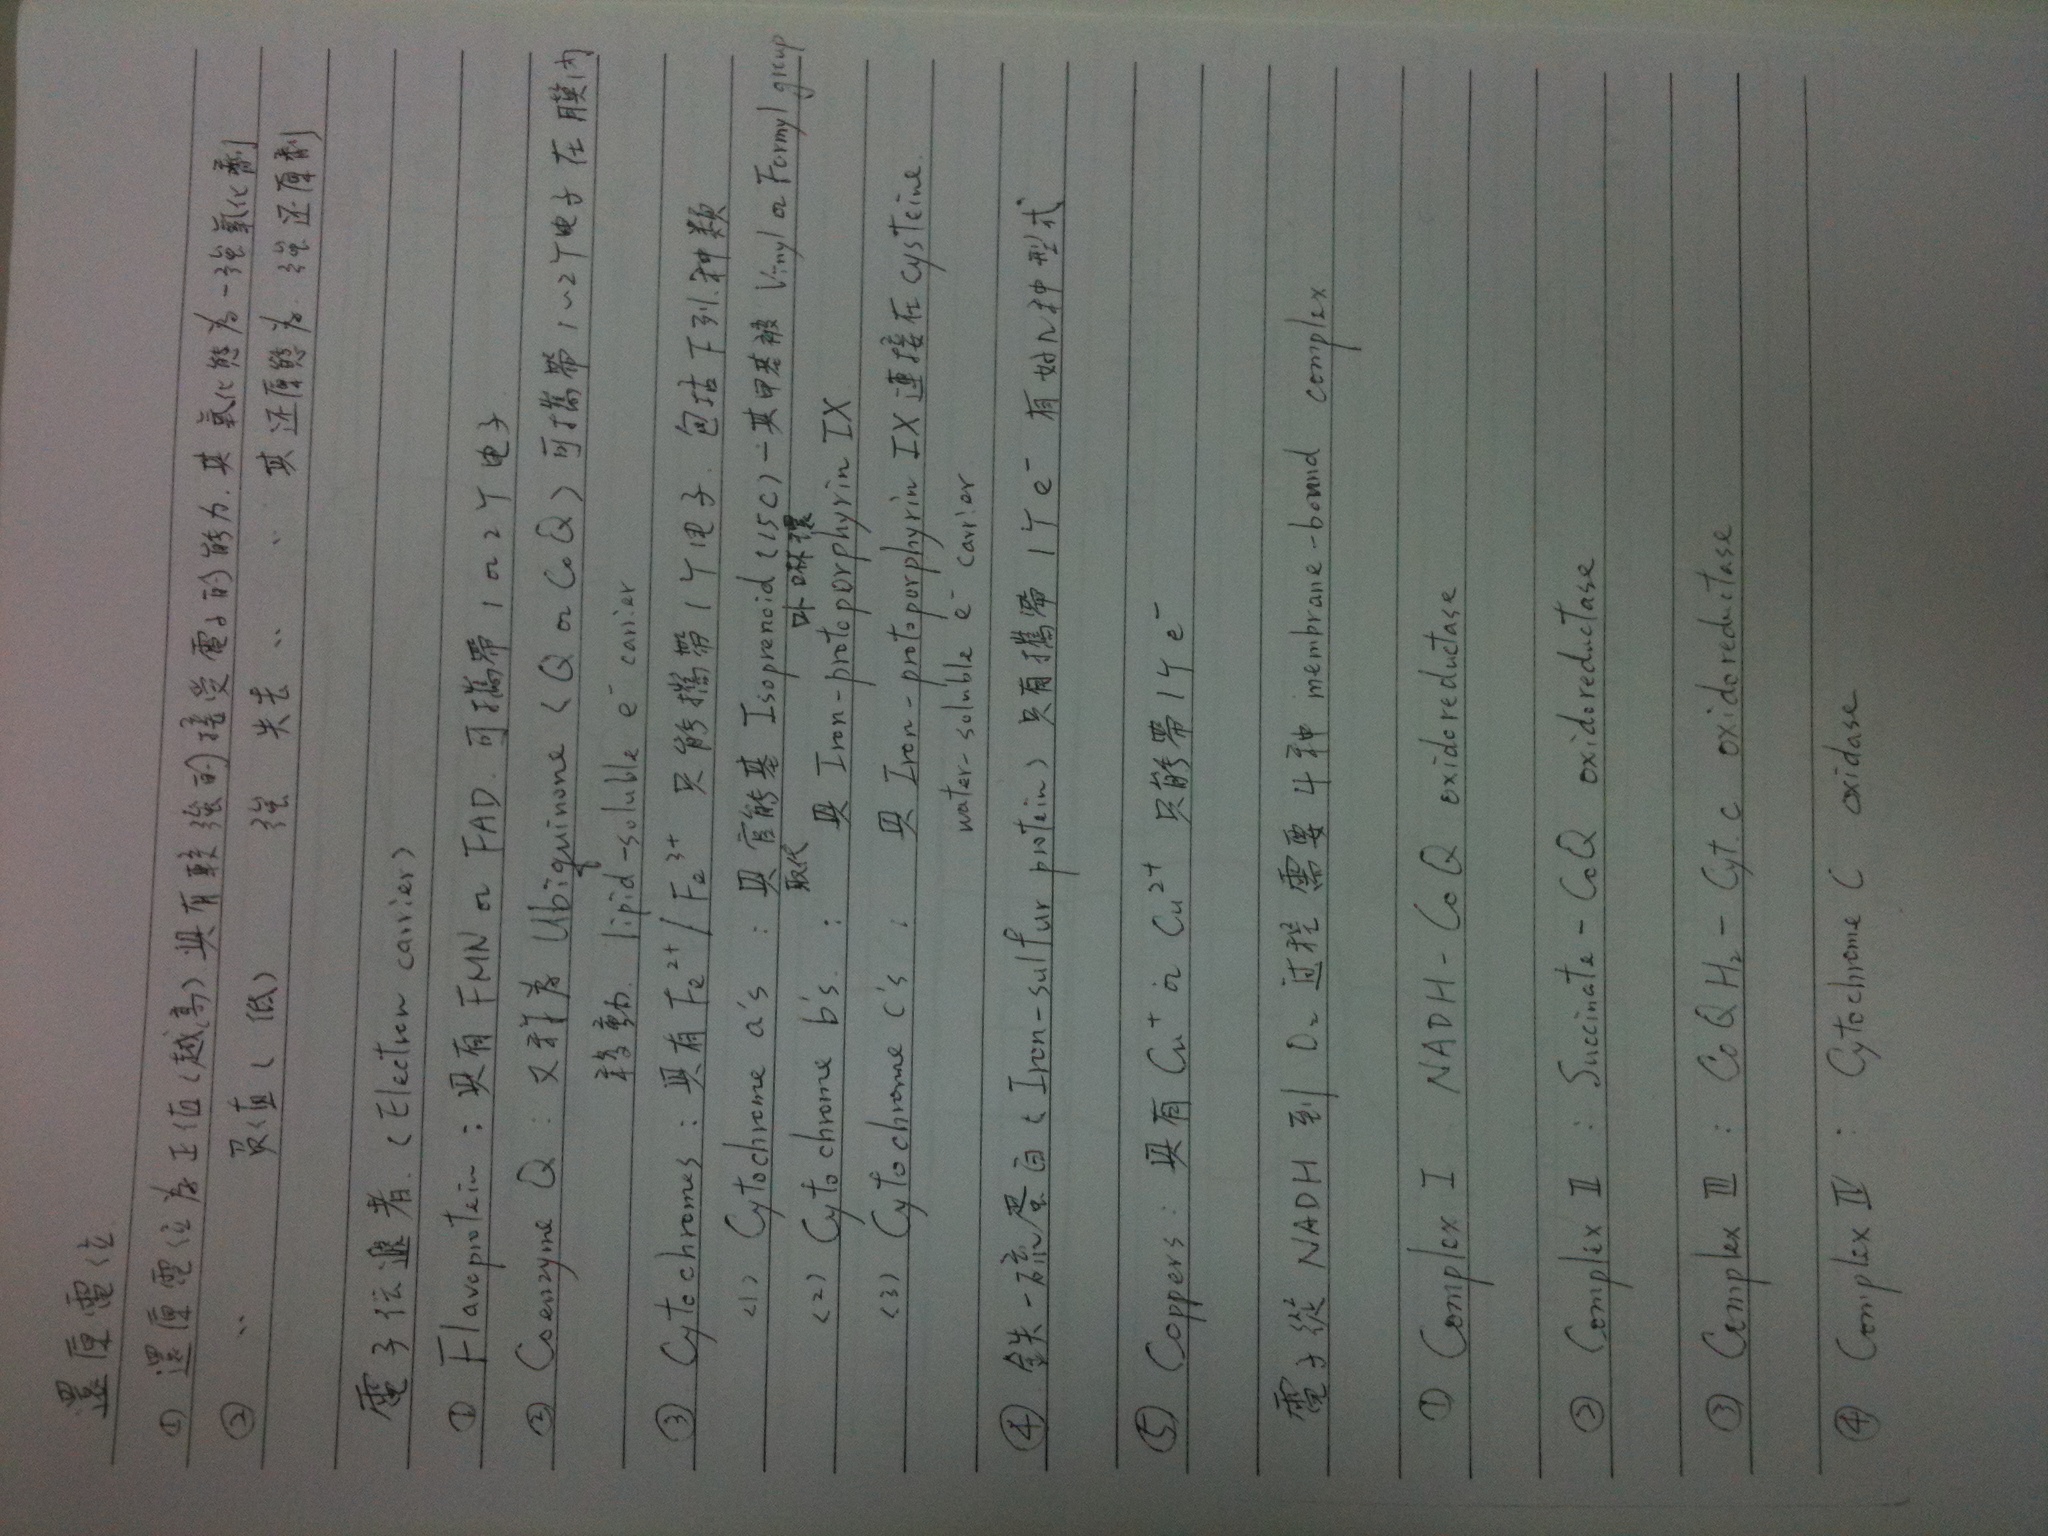 還原電位
① 還原電位為正值(越高) 具有較強的接受電子的能力. 其氧化能力-強氧化劑
② 〃 負值(低) 強 失去 〃 〃 其还原能力. 強还原劑
電子传遞者. (Electron carrier)
① Flavoprotein : 具有 FMN or FAD. 可攜帶 1 or 2个电子
② Coenzyme Q : 又称為 Ubiquinone (Q or CoQ) 可攜帶 1~2个电子 在膜內
移動. lipid-soluble e⁻ carrier
③ Cytochromes : 具有 Fe²⁺/Fe³⁺ 只能攜帶 1个电子. 包括下列种類
(1) Cytochrome a's : 具有 Isoprenoid (15C) - 其甲基被 Vinyl or Formyl group
取代
(2) Cytochrome b's : 具 Iron-protoporphyrin IX
(3) Cytochrome c's : 具 Iron-protoporphyrin IX 連接在 cysteine.
water-soluble e⁻ carrier
④ 鉄-硫蛋白 (Iron-sulfur protein) 只有攜帶 1个e⁻ 有好几种型式
⑤ Coppers : 具有 Cu⁺ or Cu²⁺ 只能帶1个e⁻
電子從 NADH 到 O₂ 过程需要 4种 membrane-bound complex
① Complex I NADH-CoQ oxidoreductase
② Complex II : Succinate-CoQ oxidoreductase
③ Complex III : CoQH₂-Cyt.c oxidoreductase
④ Complex IV : Cytochrome C oxidase